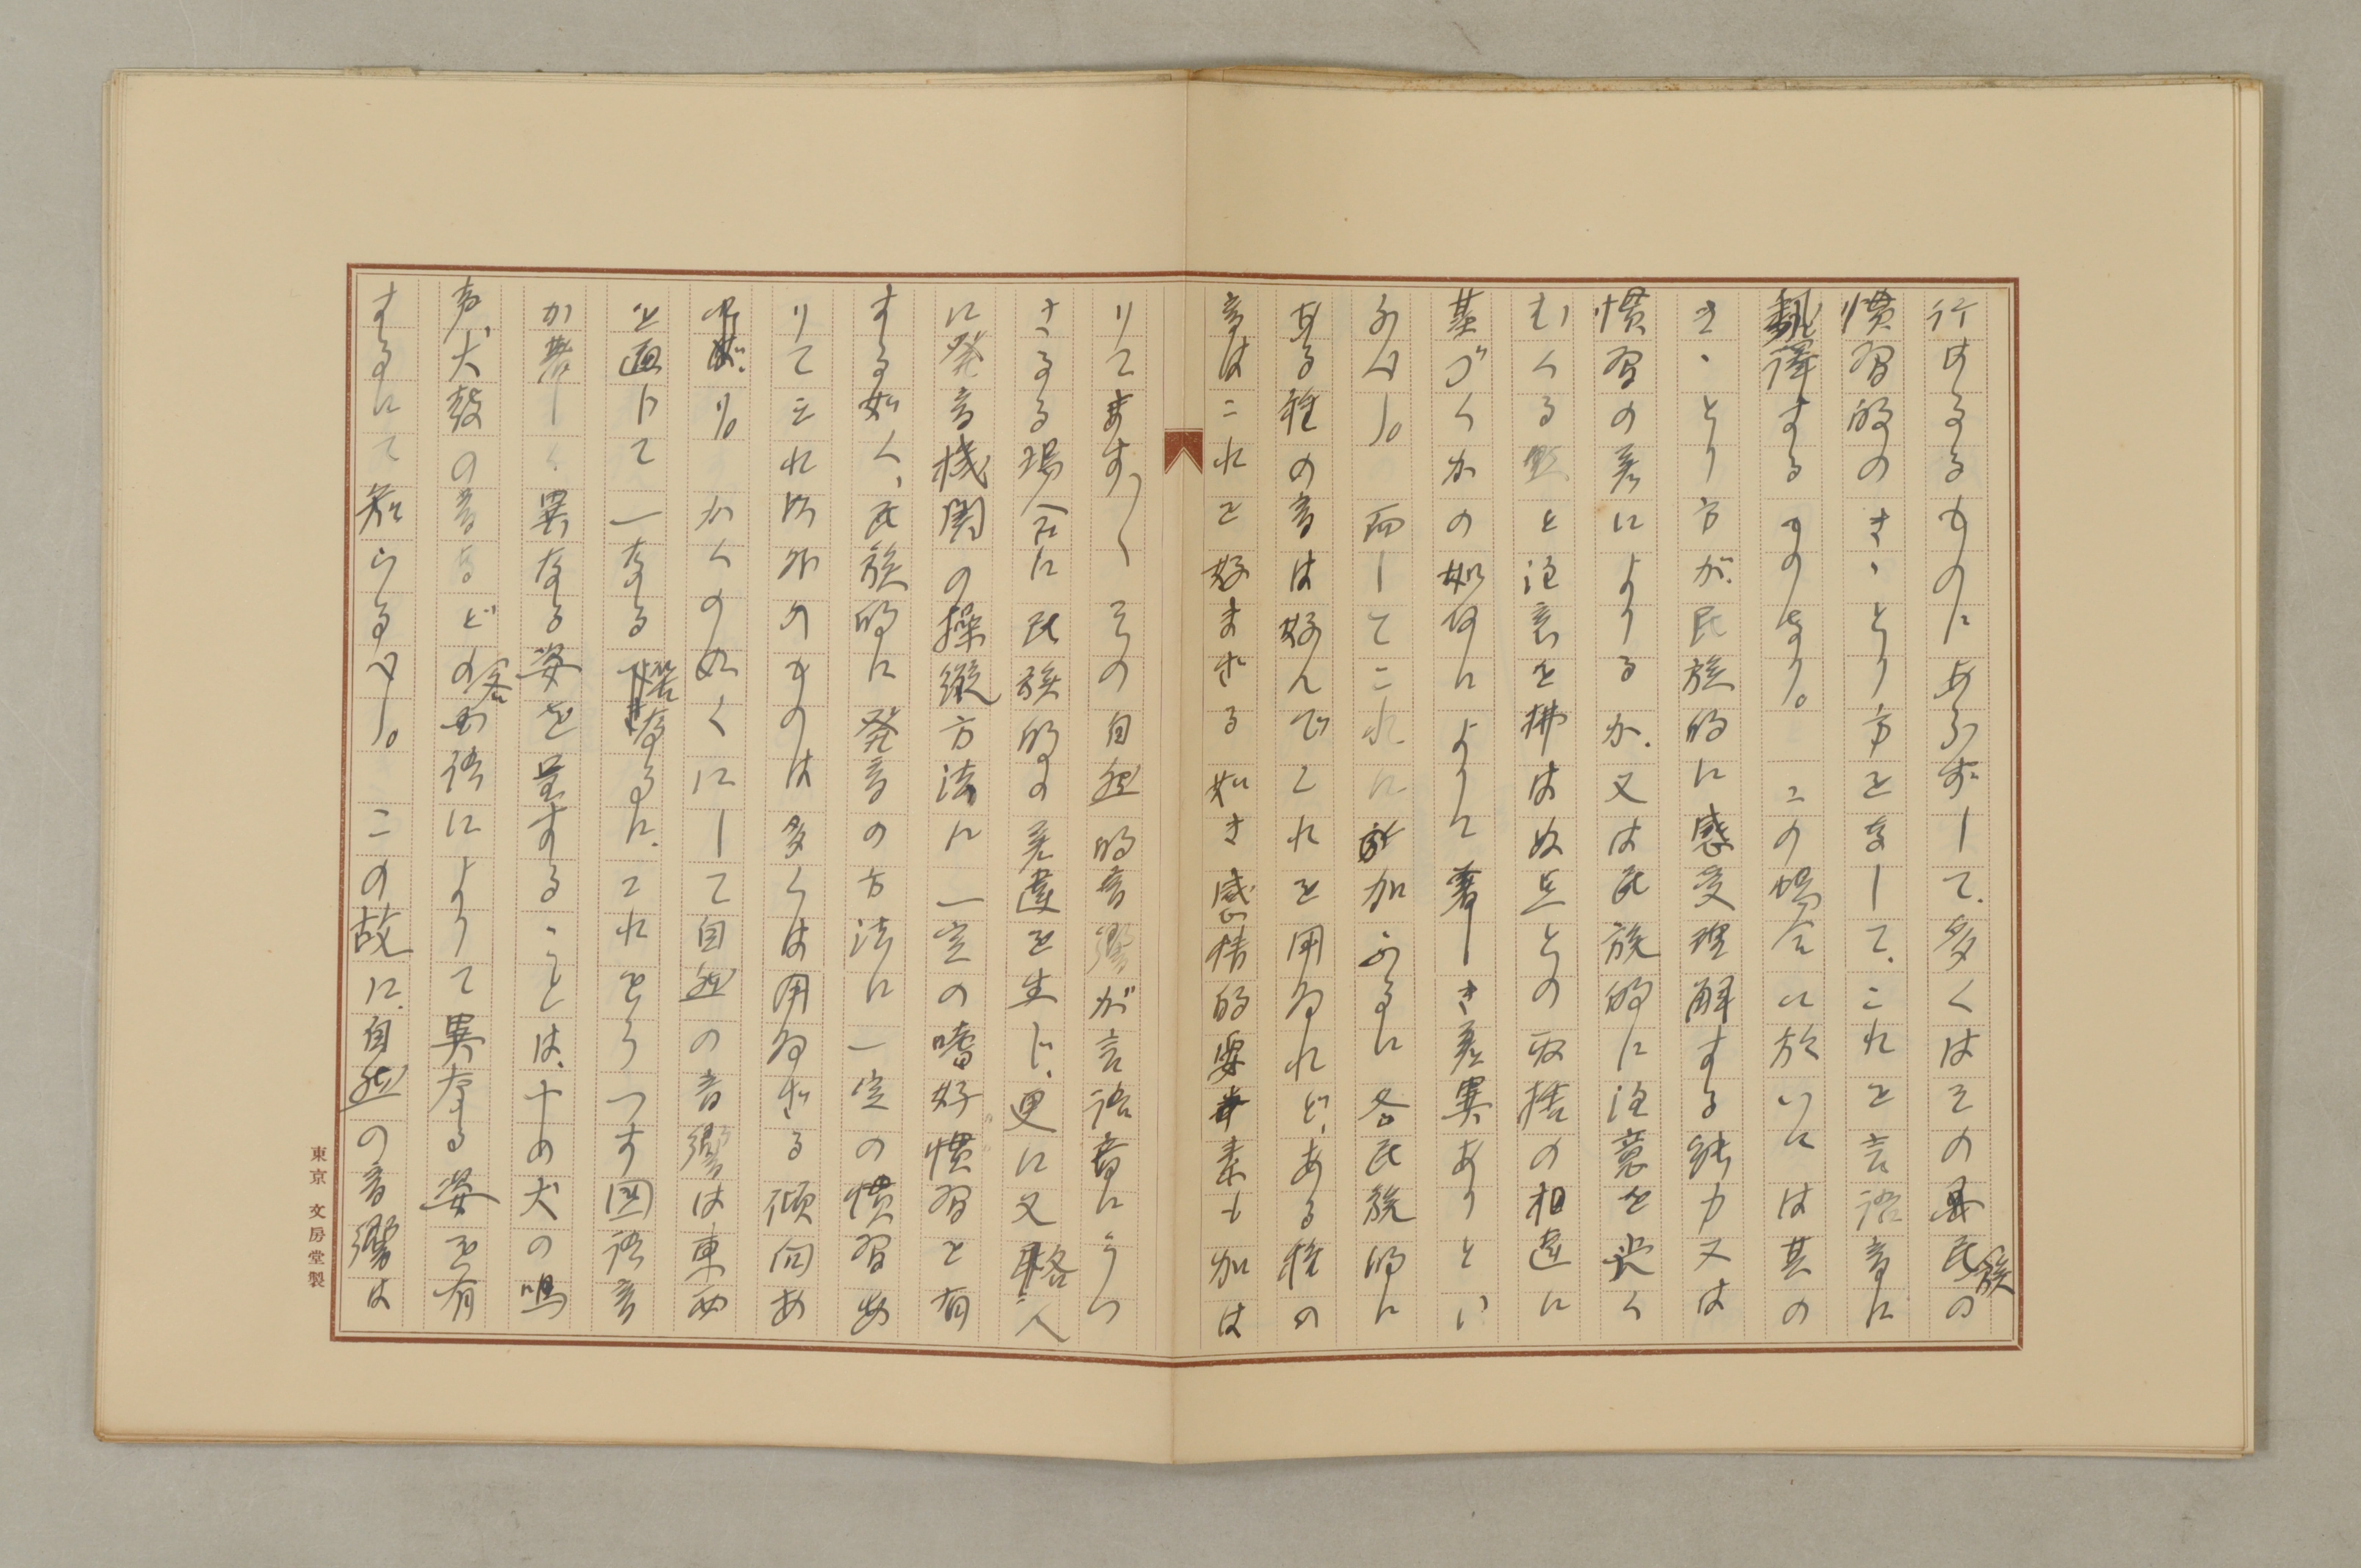 行はるるものにあらずして、多くはその民族の
慣習的のきゝとり方をなして、これを言語音に
翻譯するものなり。この場合に於いては其の
きゝとり方が、民族的に感受理解する能力又は
慣習の差によりるか、又は民族的に注意を
むくる點と注意を拂はぬ点との取捨の相違に
基づくかの如何によりて著しき差異ありとい
ふべし。而してこれに加ふるに各民族的に
ある種の音は好んでこれを用ゐれど、ある種の
音はこれを好まざる如き感情的要素も加は
りてます〱その自然的音響が言語音にうつ
さるる場合に民族的の差違を生じ、更に又各人
に発音機関の操縦方法に一定の嗜好慣習を有
する如く、民族的に発音の方法に一定の慣習あ
りてそれ以外のものは多くは用ゐざる傾向あ
り。かくの如くにして自然の音響は東西
を通じて一なる筈なるに、これをうつす国語音
が著しく異なる姿を呈することは、十の犬の鳴
声犬鼓の音などの各国語によりて異なる姿を有
するにて知らるべし。この故に、自然の音響は
東京 文房堂製